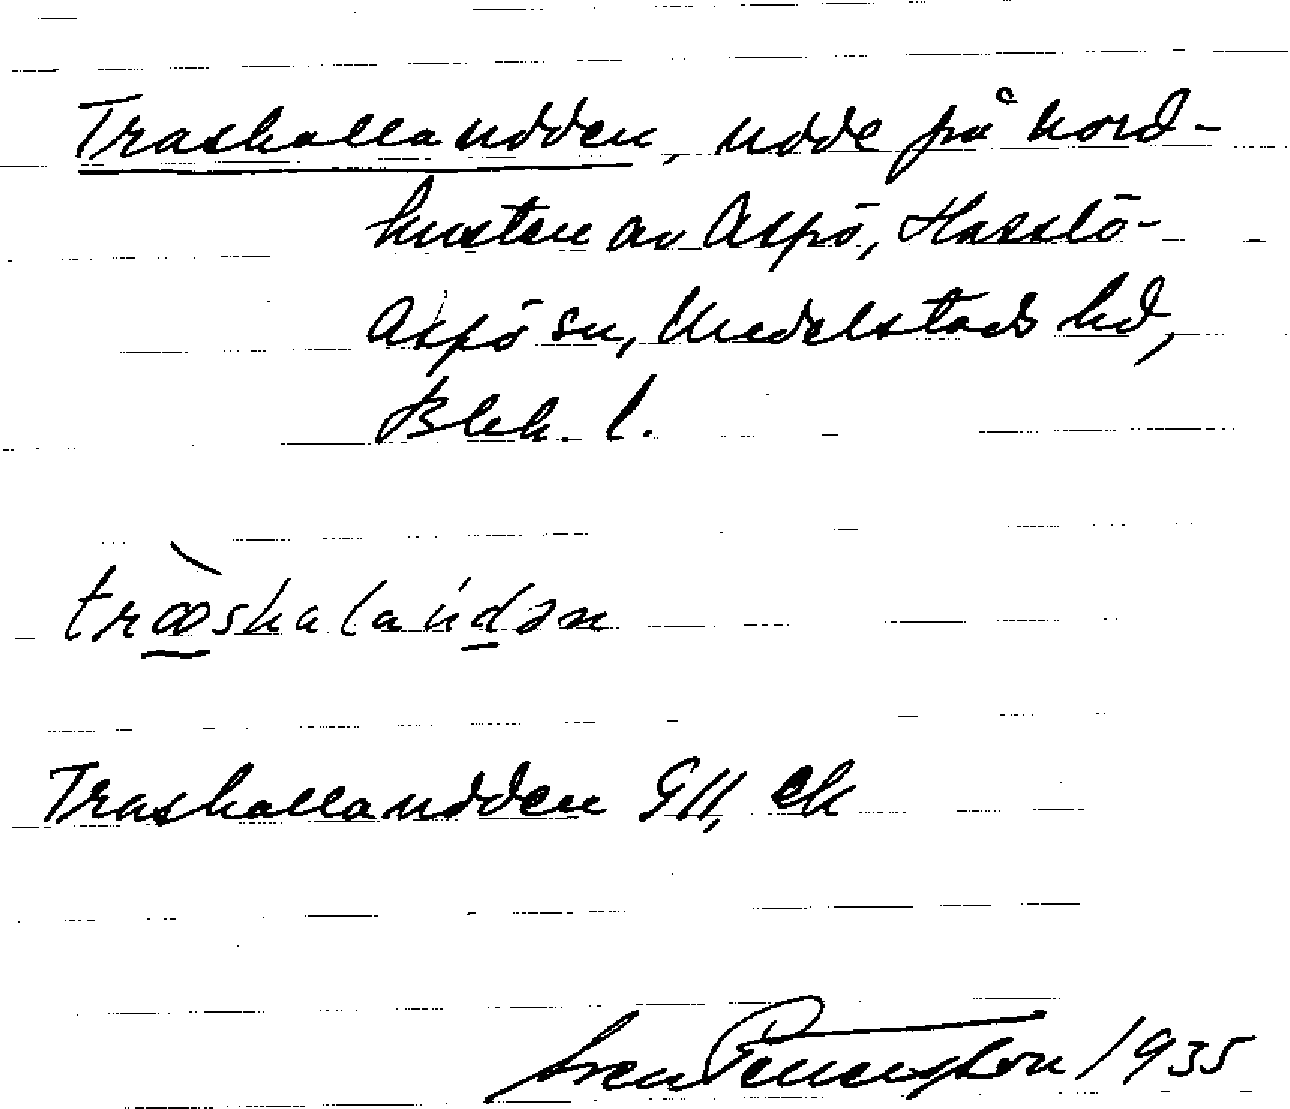 Traskallaudden, udde på nord-
kusten av Aspö, Hasslö-
Aspö sn, Medelstads hd,
Blek. l.
træ̀skalaúdən
Traskallaudden GII, ek
Sven Benson 1935